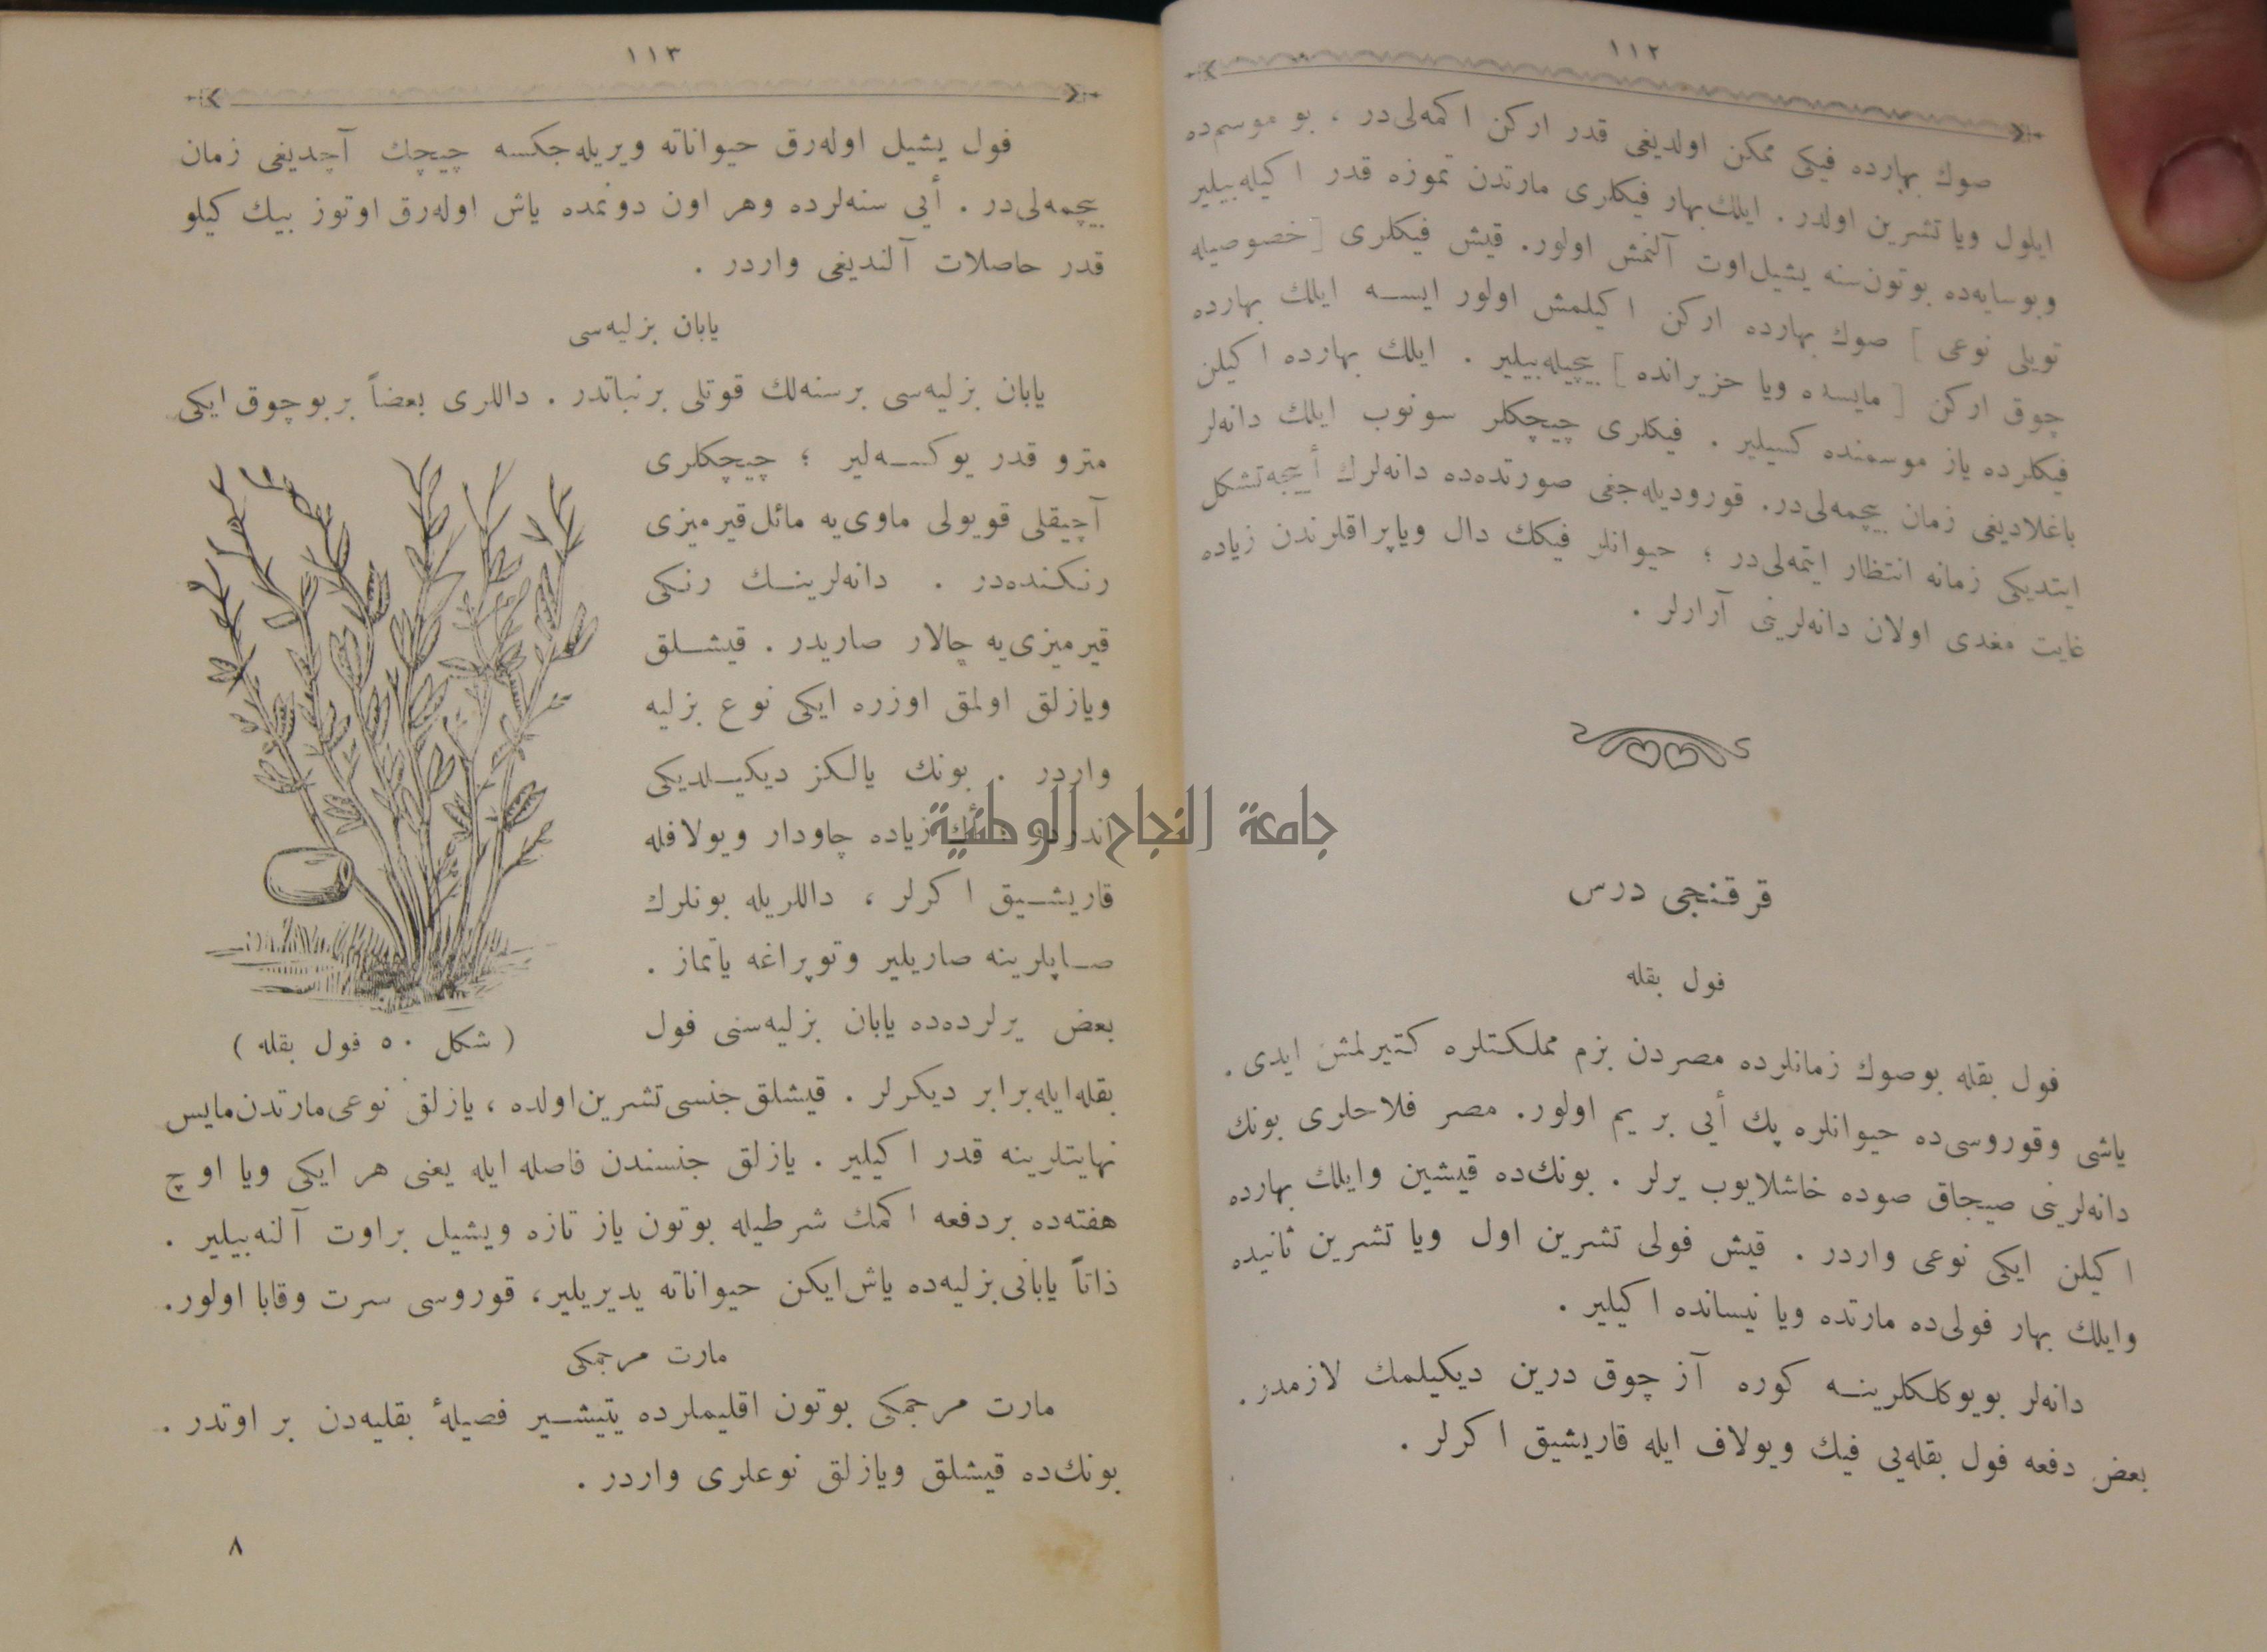 ١١٢
صوك بهارده فيكى ممكن اولديغى قدر اركن اكمه‌لى‌در ، بو موسم‌ده
ايلول ويا تشرين اولدر . ايلك‌بهار فيكلرى مارتدن تموزه قدر اكيله‌بيلير
وبوسايه‌ده بوتون‌سنه يشيل‌اوت آلنمش اولور. قيش فيكلرى [ خصوصيله
تويلى نوعى ] صوك بهارده اركن اكيلمش اولور ايسه ايلك بهارده
چوق اركن [ مايسده ويا حزيرانده ] بيچيله‌بيلير . ايلك بهارده اكيلن
فيكلرده ياز موسمنده كسيلير . فيكلرى چيچكلر سونوب ايلك دانه‌لر
باغلاديغى زمان بيچمه‌لى‌در. قوروديله‌جغى صورتده‌ده دانه‌لرك أييجه‌تشكل
ايتديكى زمانه انتظار ايتمه‌لى‌در ؛ حيوانلر فيكك دال وياپراقلرندن زياده
غايت مغدى اولان دانه‌لرينى آرارلر .
قرقنجى درس
فول بقله
فول بقله بوصوك زمانلرده مصردن بزم مملكتلره كتيرلمش ايدى .
ياشى وقوروسى‌ده حيوانلره پك أيى بر يم اولور. مصر فلاحلرى بونك
دانه‌لرينى صيجاق صوده خاشلايوب يرلر . بونك‌ده قيشين وايلك بهارده
اكيلن ايكى نوعى واردر . قيش فولى تشرين اول ويا تشرين ثانيده
وايلك بهار فولى‌ده مارتده ويا نيسانده اكيلير .
دانه‌لر بويوكلكلرينه كوره آز چوق درين ديكيلمك لازمدر .
بعض دفعه فول بقله‌يى فيك ويولاف ايله قاريشيق اكرلر .
١١٣
فول يشيل اوله‌رق حيواناته ويريله‌جكسه چيچك آچديغى زمان
بيچمه‌لى‌در . أيى سنه‌لرده وهر اون دونمده ياش اوله‌رق اوتوز بيك كيلو
قدر حاصلات آلنديغى واردر .
يابان بزليه‌سى
يابان بزليه‌سى برسنه‌لك قوتلى برنباتدر . داللرى بعضاً بربوچوق ايكى
مترو قدر يوكسه‌لير ؛ چيچكلرى
آچيقلى قويولى ماوى‌يه مائل‌قيرميزى
رنكنده‌در . دانه‌لرينك رنكى
قيرميزى‌يه چالار صاريدر . قيشلق
ويازلق اولمق اوزره ايكى نوع بزليه
واردر . بونك يالكز ديكيلديكى
اندردر زياده چاودار ويولافله
قاريشيق اكرلر ، داللريله بونلرك
صاپلرينه صاريلير وتوپراغه ياتماز .
بعض يرلرده‌ده يابان بزليه‌سنى فول
( شكل ٥٠ فول بقله )
بقله‌ايله‌برابر ديكرلر . قيشلق‌جنسى‌تشرين‌اولده ، يازلق نوعى‌مارتدن‌مايس
نهايتلرينه قدر اكيلير . يازلق جنسندن فاصله ايله يعنى هر ايكى ويا اوچ
هفته‌ده بردفعه اكمك شرطيله بوتون ياز تازه ويشيل براوت آلنه‌بيلير .
ذاتاً يابانى‌بزليه‌ده ياش‌ايكن حيواناته يديريلير، قوروسى سرت وقابا اولور.
مارت مرجمكى
مارت مرجمكى بوتون اقليملرده يتيشير فصيلهٔ بقليه‌دن بر اوتدر .
بونك‌ده قيشلق ويازلق نوعلرى واردر .
٨
جامعة النجاح الوطنية